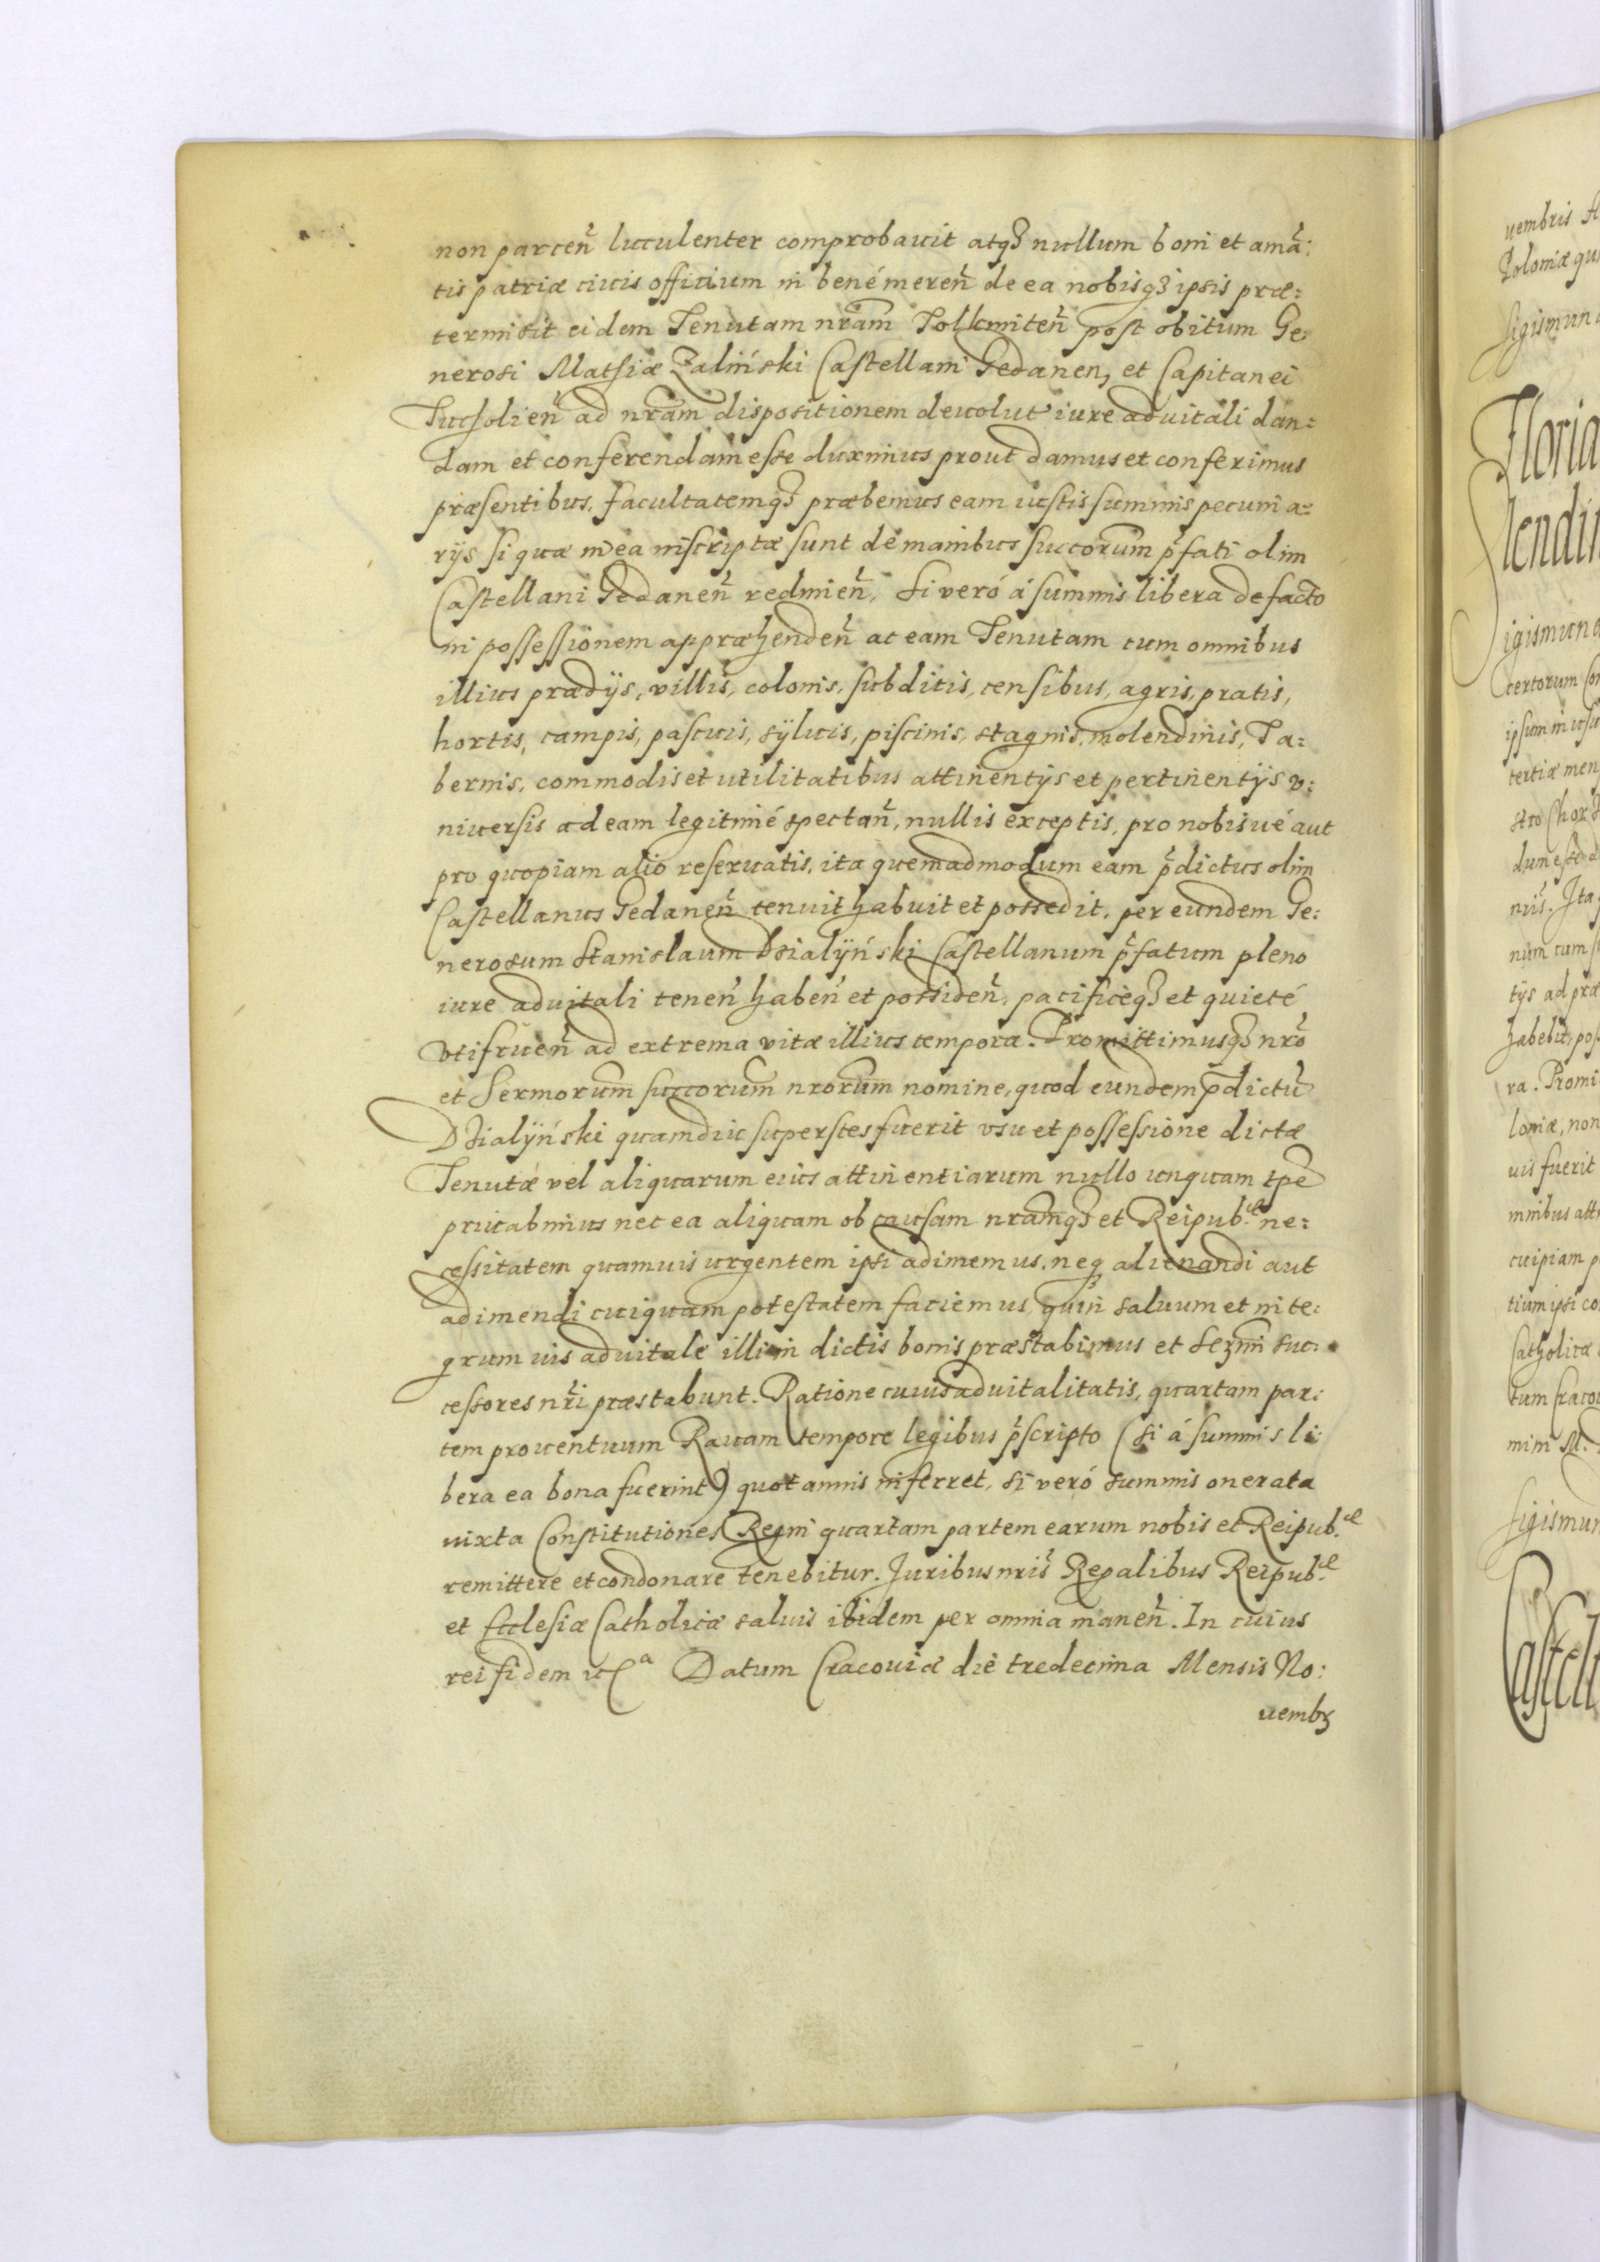 non parceñ luculenter comprobauit atqꝫ nullum boni et amã:
tis patriæ ciuis officium in bené mereñ de ea nobisqꝫ ipsis præ:
termisit eidem Tenutam nram̃ Tolkmiteñ post obitum Ge
nerosi Mathiæ Zaliński Castellani Gedanenꝫ et Capitanei
Tucholieñ ad nram̃ dispositionem deuolut iure aduitali dan:
dam et conferendam esse duximus prout damus et conferimus
præsentibus. Facultatemqꝫ præbemus eam iustis summis pecunia:
rijs si quæ in ea inscriptæ sunt de manibus succorum̃ p̃fati olim
Castellani Gedaneñ redimeñ. Si veró á summis libera de facto
in possessionem appræhendeñ ac eam Tenutam cum omnibus
illius prædijs, villis, colonis, subditis, censibus, agris, pratis,
hortis, campis, pascuis, sÿluis, piscinis, stagnis, molendinis, Ta:
bernis, commodis et utilitatibus attinentijs et pertinentijs v:
niuersis ad eam legitimé spectañ, nullis exceptis, pro nobisué aut
pro quopiam alio reseruatis, ita quemadmodum eam p̃dictus olim
Castellanus Gedaneñ tenuit habuit et possedit. per eundem Ge:
nerosum Stanislaum Dzialÿński Castellanum p̃fatum pleno
iure aduitali teneñ habeñ et possideñ, pacificéqꝫ et quieté
vtifrueñ ad extrema vitæ illius tempora. Promittimusqꝫ nrõ
et Sermorum̃ succorum̃ nrorum̃ nomine, quod eundem p̃dictũ
Dzialÿński quamdiu superstes fuerit vsu et possessione dictæ
Tenutæ vel aliquarum eius attinentiarum nullo unquam tp̃e
priuabimus nec ea aliquam ob causam nram̃qꝫ et Reipub.cæ ne:
cessitatem quamuis urgentem ipsi adimemus. neqꝫ alienandi aut
adimendi cuiquam potestatem faciemus, quin saluum et inte:
grum ius aduitale illi in dictis bonis præstabimus et Serm̃i suc:
cessores nr̃i præstabunt. Ratione cuius aduitalitatis, quartam par:
tem prouentuum Rauam tempore legibus p̃scripto (si á summis li:
bera ea bona fuerint) quotannis inferret, si veró summis onerata
iuxta Constitutiones Regni quartam partem earum nobis et Reipub.cæ
remittere et condonare tenebitur. Juribus nris̃ Regalibus Reipub.cæ
et Ecclesiæ Catholicæ saluis ibidem per omnia maneñ. In cuius
rei fidem etc.a Datum Cracouiæ die tredecima Mensis No:
uembꝫ
uembris
Poloniæ
Floria
igismun
certorum
tertiæ
nũs. Ita
num cum
tijs ad præ
habebit, pos
ra. Promi
loniæ, non
uis fuerit
mnibus
cuipiam
tium ipsi
Catholicæ
tum Cracou
Castell